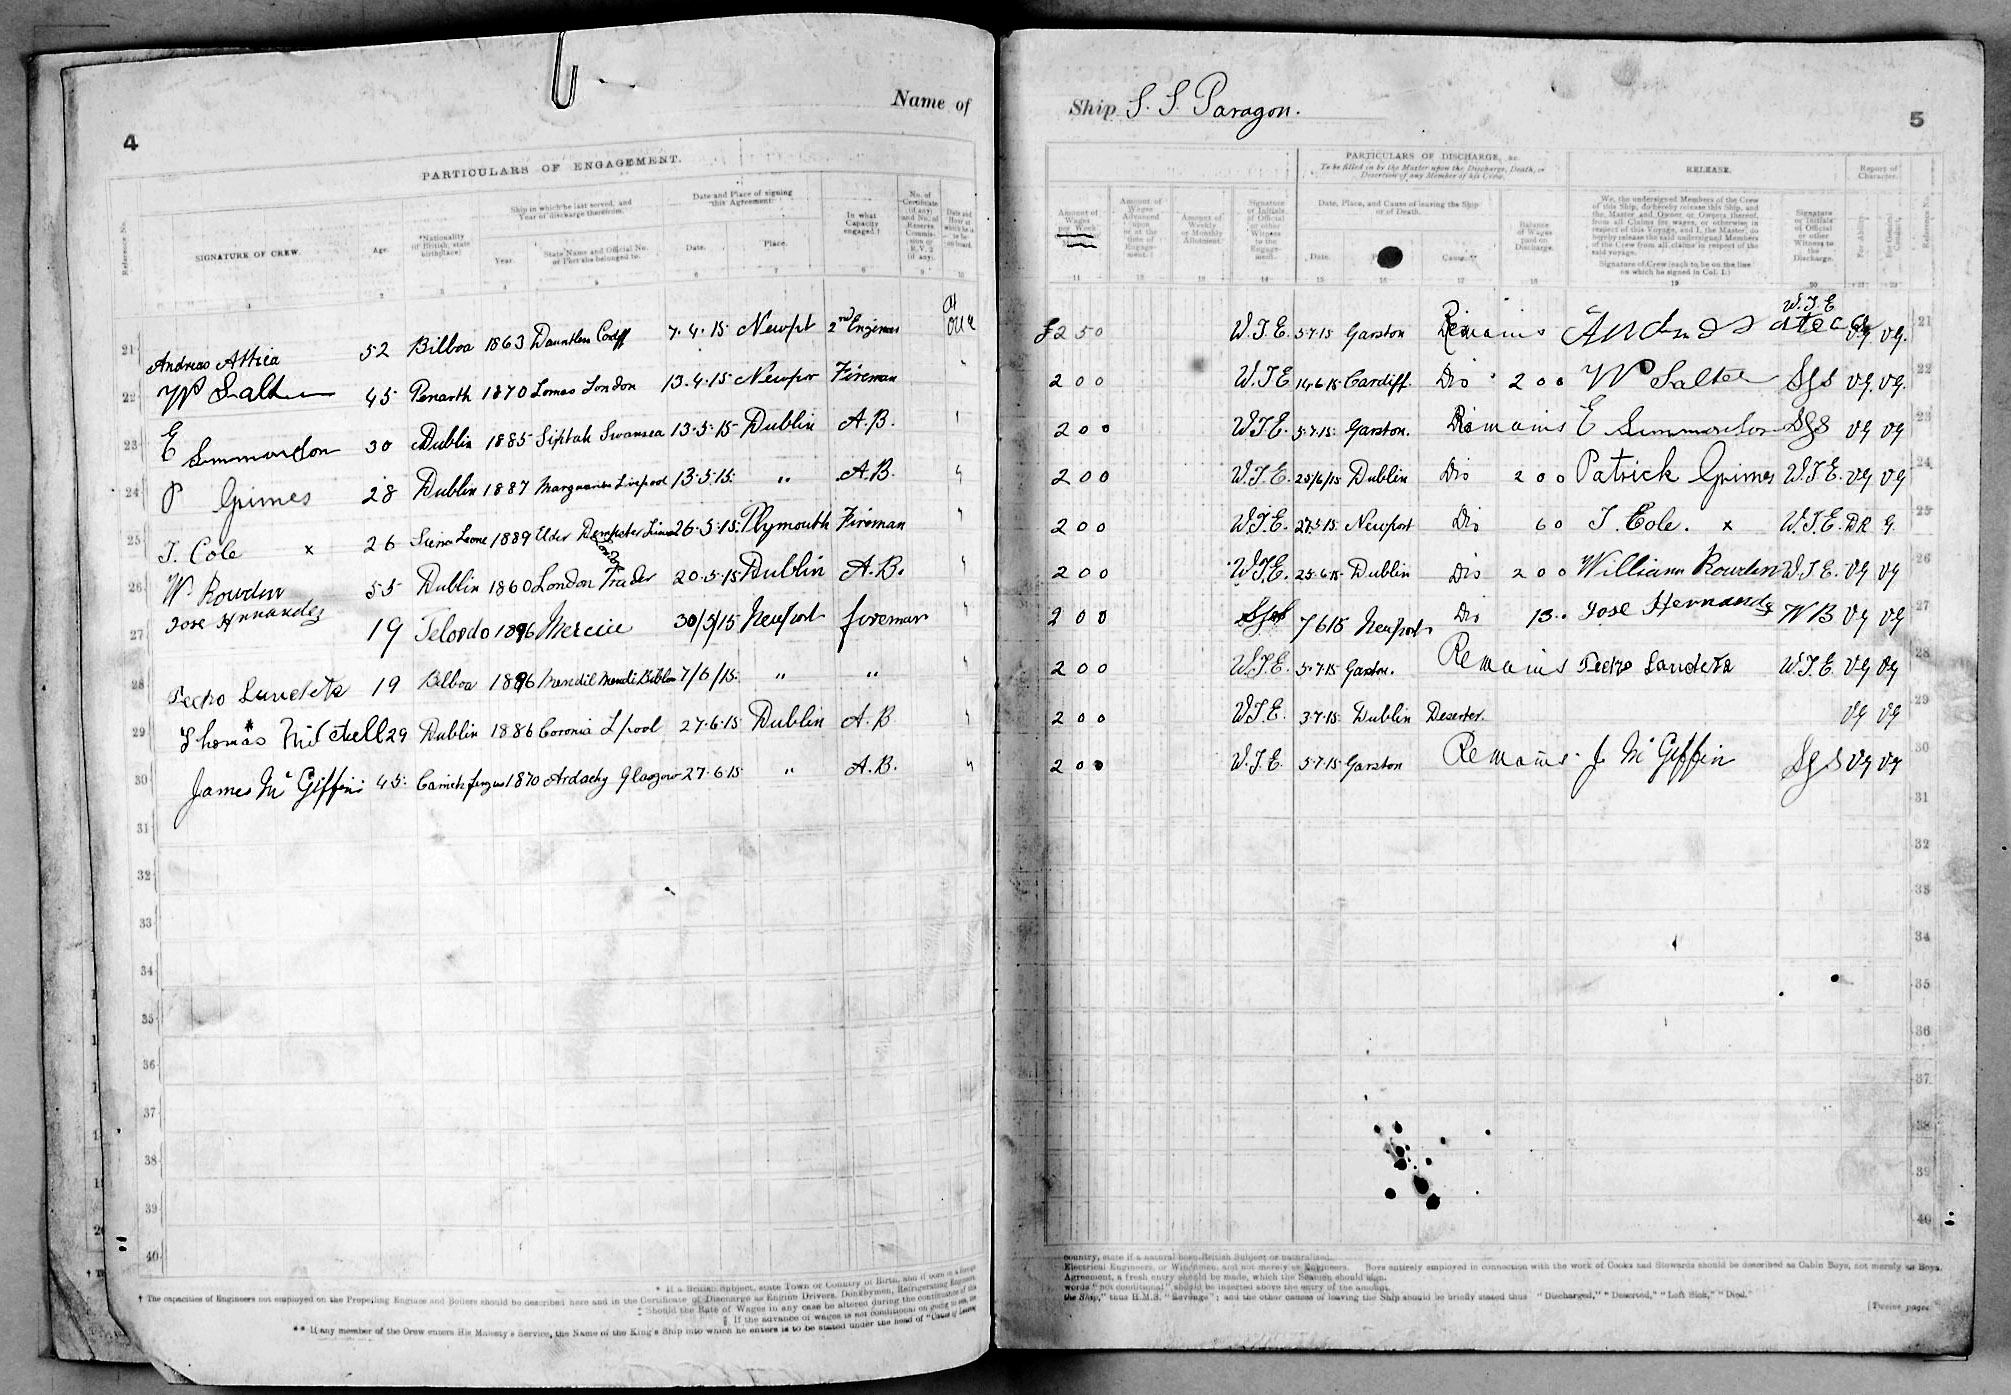 4
Name of
PARTICULARS OF ENGAGEMENT.
Reference No.
SIGNATURE OF CREW.
Age.
*Nationality
(if British, state
birthplace)
Ship in which he last served, and
Year of discharge therefrom.
Year.
State Name and Official No.
or Port she belonged to.
Date and Place of signing
this Agreement.
Date.
Place.
In what
Capacity
engaged.†
No. of
Certificate
(if any)
and No. of
Reserve
Commis-
sion or
R.V.2
(if any).
Date and
Hour at
which he is
to be
on board.
1 2 3 4 5 6 7 8 9 10
21 Andreas Attica 52 Bilboa 1863 Dauntless Cdff 7.4.15 Newpt 2nd Engineer At once
22 W Salter 45 Penarth 1870 Lomas London 13.4.15 Newpor Fireman "
23 E Simmondson 30 Dublin 1885 Siptah Swansea 13.5.15 Dublin A.B. "
24 P Grimes 28 Dublin 1887 Liverpool 13.5.15 " A.B. "
25 T. Cole x 26 Siera Leone 1889 Elder Dempster Line London 26.5.15 Plymouth Fireman "
26 W. Rowden 55 Dublin 1860 London Trader 20.5.15 Dublin A.B. "
27 Jose Hernandez 19 Telordo 1896 Mercie 30/5/15 Newport fireman "
28 Pedro Landeta 19 Bilboa 1896 Mendi Bilboa 7/6/15 " " "
29 Thomas Mitchell 29 Dublin 1886 Coronia Lpool 27.6.15 Dublin A.B "
30 James McGiffin 45 Carrickfergus 1870 Ardachy Glasgow 27.6.15 " A.B. "
31
32
33
34
35
36
37
38
39
40
* If a British Subject, state Town or Country of Birth, and if born in a foreign
† The capacities of Engineers not employed on the Propelling Engines and Boilers should be described here and in the Certificate of Discharge as Engine Drivers, Donkeymen, Refrigerating Engineers,
‡ Should the Rate of Wages in any case be altered during the continuance of this
§ If the advance of wages is not conditional on going to sea, the
** If any member of the Crew enters His Majesty's Service, the Name of the King's Ship into which he enters is to be stated under the head of "Cause of Leaving
Ship S. S. Paragon.
5
PARTICULARS OF DISCHARGE, &c.
To be filled in by the Master upon the Discharge, Death, or
Desertion of any Member of his Crew.
RELEASE.
Report of
Character.
Amount of
Wages
per Week
Amount of
Wages
Advanced
upon
or at the
time of
Engage-
ment.‡
Amount of
Weekly
or Monthly
Allotment.
Signature
or Initials
of Official
or other
Witness
to the
Engage-
ment.
Date, Place, and Cause of leaving the Ship
or of Death.
Date.
Cause.**
Balance
of Wages
paid on
Discharge.
We, the undersigned Members of the Crew
of this Ship, do hereby release this Ship, and
the Master and Owner or Owners thereof,
from all Claims for wages, or otherwise in
respect of this Voyage, and I, the Master, do
hereby release the said undersigned Members
of the Crew from all claims in respect of the
said voyage.
Signature of Crew (each to be on the line
on which he signed in Col. 1.)
Signature
or Initials
of Official
or other
Witness to
the
Discharge.
For Ability.
For General
Conduct.
Reference No.
11 12 13 14 15 16 17 18 19 20 21 22
£2 5 0 W.J.E. 5.7.15 Garston Remains Andreas ateca W.J.E VG. VG. 21
2 0 0 W.J.E 14.6.15 Cardiff. Dis 2 0 0 W Salter SGS VG. VG. 22
2 0 0 W.J.E. 5.7.15 Garston. Remains E Simmondson SGS VG VG 23
2 0 0 W.J.E. 25/6/15 Dublin Dis 2 0 0 Patrick Grimes W.J.E. VG VG 24
2 0 0 W.J.E. 27.5.15 Newport Dis 6 0 T. Cole. x W.J.E. DR G. 25
2 0 0 W.J.E. 25.6.15 Dublin Dis 2 0 0 William Rowden W.J.E. VG VG 26
2 0 0 SGS 7 6 15 Newport Dis 13.. Jose Hernandz W B VG VG 27
2 0 0 W.J.E. 5.7.15 Garston. Remains Pedro Landeta W.J.E. VG VG 28
2 0 0 W.J.E. 3.7.15 Dublin Deserter. VG VG 29
2 0 0 W.J.E. 5.7.15 Garston Remains J McGiffin SGS VG VG 30
31
32
33
34
35
36
37
38
39
40
country, state if a natural born British Subject or naturalised.
Electrical Engineers, or Winchmen, and not merely as Engineers. Boys entirely employed in connection with the work of Cooks and Stewards should be described as Cabin Boys, not merely as Boys.
Agreement, a fresh entry should be made, which the Seaman should sign.
words "not conditional" should be inserted above the entry of the amount.
the Ship," thus H.M.S. "Revenge"; and the other causes of leaving the Ship should be briefly stated thus "Discharged," "Deserted," "Left Sick," "Died."
[Twelve pages